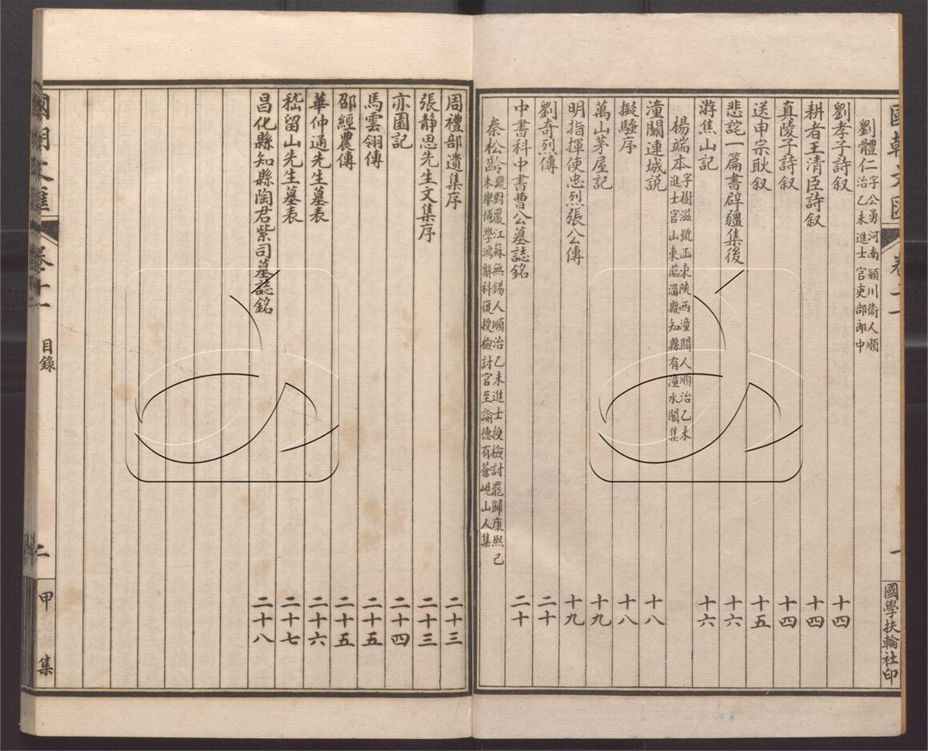 國朝文匯 卷十一 一 國學扶輪社印
劉體仁 字公勇河南潁川衛人順治乙未進士官吏部郎中
劉孝子詩叙 十四
耕者王清臣詩叙 十四
真陵子詩叙 十四
送申宗耿叙 十五
悲詫一篇書辟疆集後 十六
游焦山記 十六
楊端本 字樹滋號函東陝西潼關人順治乙未進士官山東臨淄縣知縣有潼水閣集
潼關連城說 十八
擬騷序 十八
萬山茅屋記 十九
明指揮使忠烈張公傳 十九
劉奇列傳 二十
中書科中書曹公墓誌銘 二十
秦松齡 號對巖江蘇無錫人順治乙未進士授檢討罷歸康熙己未舉博學鴻辭科復授檢討官至諭德有蒼峴山人集
周禮部遺集序 二十三
張靜思先生文集序 二十三
亦園記 二十四
馬雲翎傳 二十五
邵經農傳 二十五
華仲通先生墓表 二十六
嵇留山先生墓表 二十七
昌化縣知縣陶君紫司墓誌銘 二十八
國朝文匯 卷十一 目錄 二 甲集